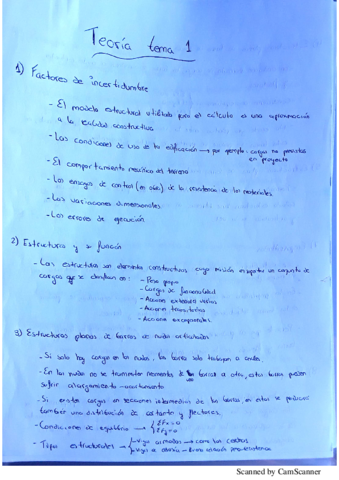 Teoría tema 1
1) Factores de incertidumbre
- El modelo estructural utilizado para el cálculo es una aproximación
a la realidad constructiva
- Las condiciones de uso de la edificación → por ejemplo: cargas no previstas
en proyecto
- El comportamiento mecánico del terreno
- Los ensayos de control (en obra) de la resistencia de los materiales
- Las variaciones dimensionales
- Los errores de ejecución
2) Estructura y su función
- Las estructuras son elementos constructivos cuya misión es soportar un conjunto de
cargas que se clasifican en: - Peso propio
- Cargas de funcionalidad
- Acciones exteriores varias
- Acciones
- Acciones excepcionales
3) Estructuras planas de barras de nudos articulados
- Si solo hay cargas en los nudos, las barras solo trabajan a
- En los nudos no se transmiten momentos de barra a otra, estas barras pueden
sufrir alargamiento - acortamiento
- Si existen cargas en secciones intermedias de las barras, en estas se producirá
también una distribución de cortante y flectores.
- Condiciones de equilibrio → ΣFx=0
ΣFy=0
- Tipos estructurales → vigas → como las cerchas
Scanned by CamScanner